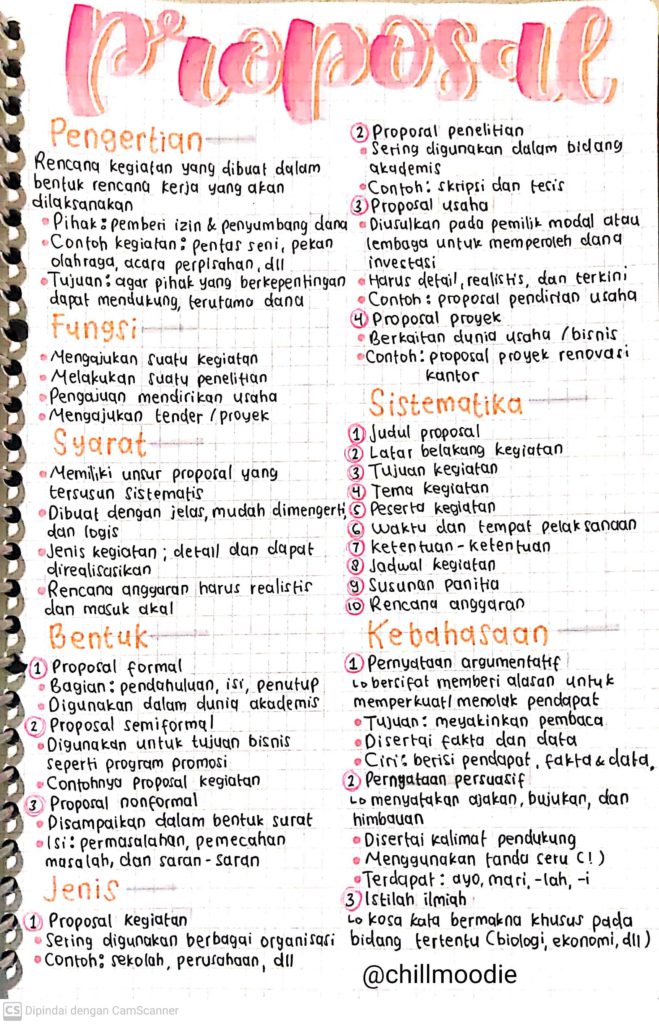 Proposal
Pengertian
Rencana kegiatan yang dibuat dalam
bentuk rencana kerja yang akan
dilaksanakan
• Pihak : pemberi izin & penyumbang dana
• Contoh kegiatan : pentas seni, pekan
olahraga, acara perpisahan, dll
• Tujuan : agar pihak yang berkepentingan
dapat mendukung, terutama dana
Fungsi
• Mengajukan suatu kegiatan
• Melakukan suatu penelitian
• Pengajuan mendirikan usaha
• Mengajukan tender / proyek
Syarat
• Memiliki unsur proposal yang
tersusun sistematis
• Dibuat dengan jelas, mudah dimengerti
dan logis
• Jenis kegiatan ; detail dan dapat
direalisasikan
• Rencana anggaran harus realistis
dan masuk akal
Bentuk
① Proposal formal
• Bagian : pendahuluan, isi, penutup
• Digunakan dalam dunia akademis
② Proposal semiformal
• Digunakan untuk tujuan bisnis
seperti program promosi
• Contohnya proposal kegiatan
③ Proposal nonformal
• Disampaikan dalam bentuk surat
• Isi : permasalahan, pemecahan
masalah, dan saran - saran
Jenis
① Proposal kegiatan
• Sering digunakan berbagai organisasi
• Contoh : sekolah, perusahaan, dll
② Proposal penelitian
• Sering digunakan dalam bidang
akademis
• Contoh : skripsi dan tesis
③ Proposal usaha
• Diusulkan pada pemilik modal atau
lembaga untuk memperoleh dana
investasi
• Harus detail, realistis, dan terkini
• Contoh : proposal pendirian usaha
④ Proposal proyek
• Berkaitan dunia usaha / bisnis
• Contoh : proposal proyek renovasi
kantor
Sistematika
① Judul proposal
② Latar belakang kegiatan
③ Tujuan kegiatan
④ Tema kegiatan
⑤ Peserta kegiatan
⑥ Waktu dan tempat pelaksanaan
⑦ Ketentuan - ketentuan
⑧ Jadwal kegiatan
⑨ Susunan panitia
⑩ Rencana anggaran
Kebahasaan
① Pernyataan argumentatif
↳ bersifat memberi alasan untuk
memperkuat/ menolak pendapat
• Tujuan : meyakinkan pembaca
• Disertai fakta dan data
• Ciri² : berisi pendapat, fakta & data.
② Pernyataan persuasif
↳ menyatakan ajakan, bujukan, dan
himbauan
• Disertai kalimat pendukung
• Menggunakan tanda seru (!)
• Terdapat : ayo, mari, -lah, -i
③ Istilah ilmiah
↳ kosa kata bermakna khusus pada
bidang tertentu (biologi, ekonomi, dll)
@chillmoodie
CS Dipindai dengan CamScanner